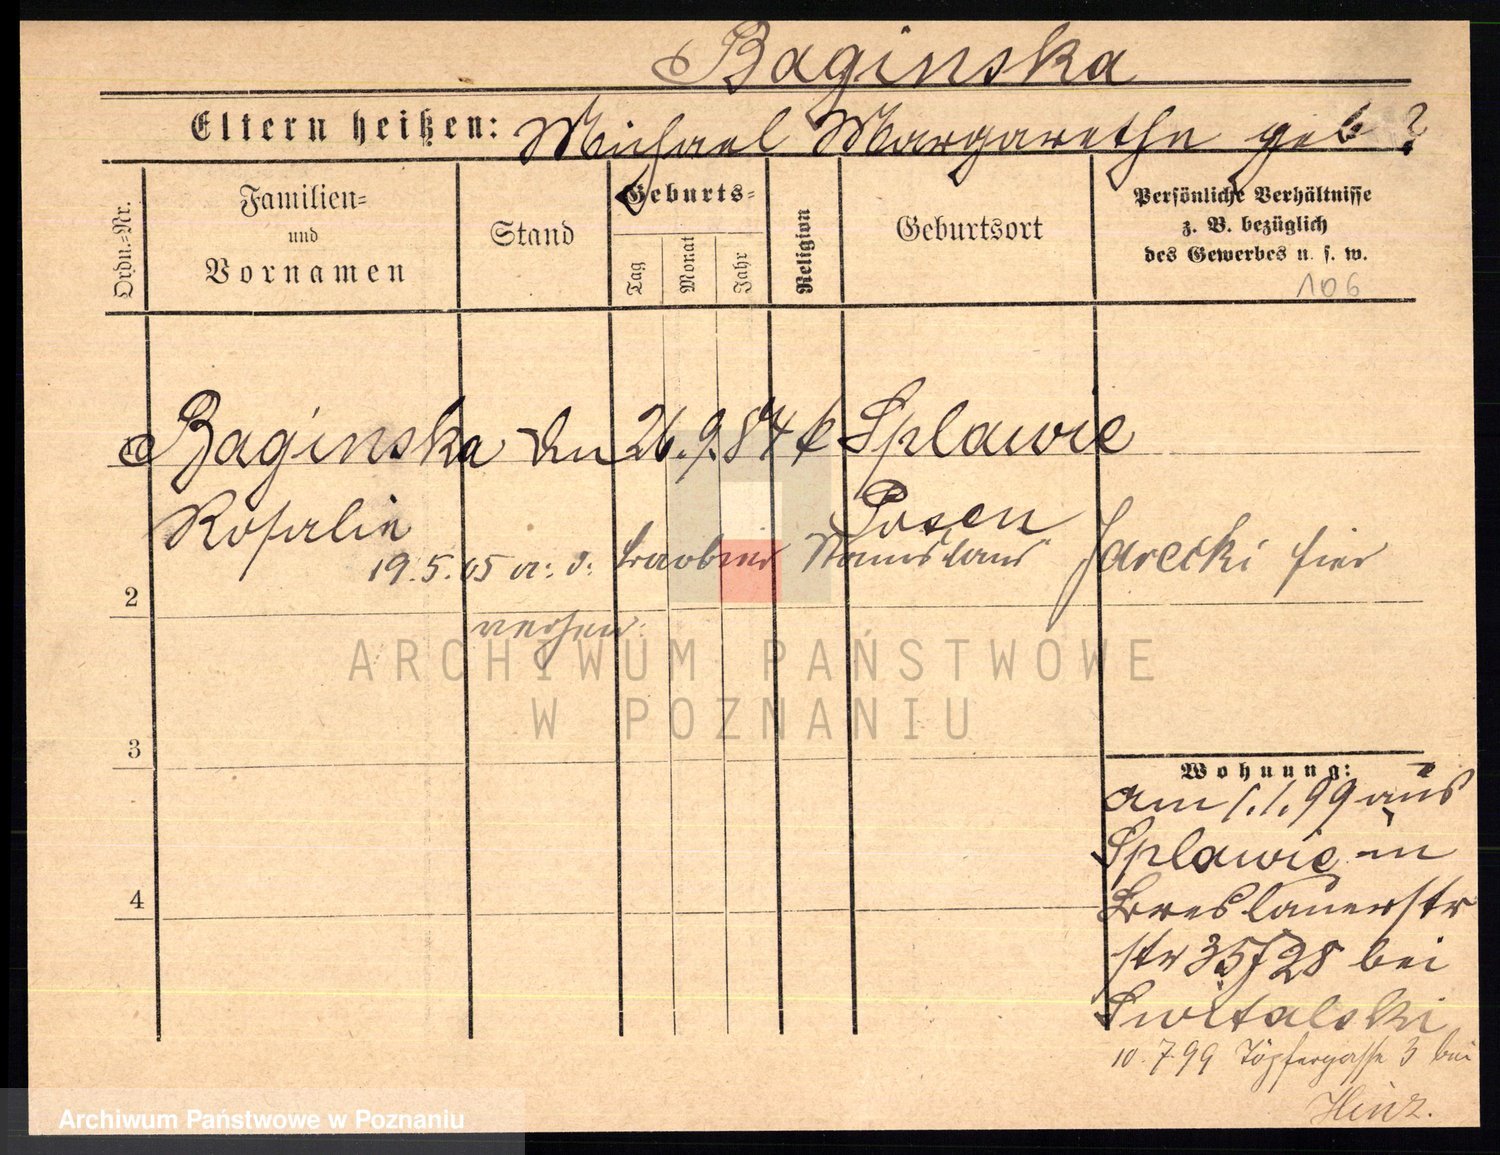 Baginska
Eltern heißen: Michael Margarethe geb ?
Ordn.-Nr.
Familien-
und
Vornamen
Stand
Geburts-
Tag
Monat
Jahr
Religion
Geburtsort
Persönliche Verhältnisse
z. B. bezüglich
des Gewerbes u. s. w.
106
Baginska 26. 9. 84 k Splawie
Rosalie Posen
19. 5. 05 Stanislaus Jarecki hier
2
3
4
ARCHIWUM PAŃSTWOWE
W POZNANIU
Wohnung:
am 1. 1. 99 aus
Splawie in
Breslauerstr
str 35/28 bei
Switalski
10. 7. 99 Töpfergasse 3 bei
Hinz.
Archiwum Państwowe w Poznaniu